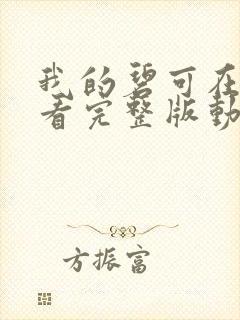 我的碧可在
看完整版動
方振富